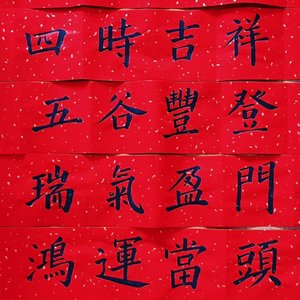 四時吉祥
五谷豐登
瑞氣盈門
鴻運當頭